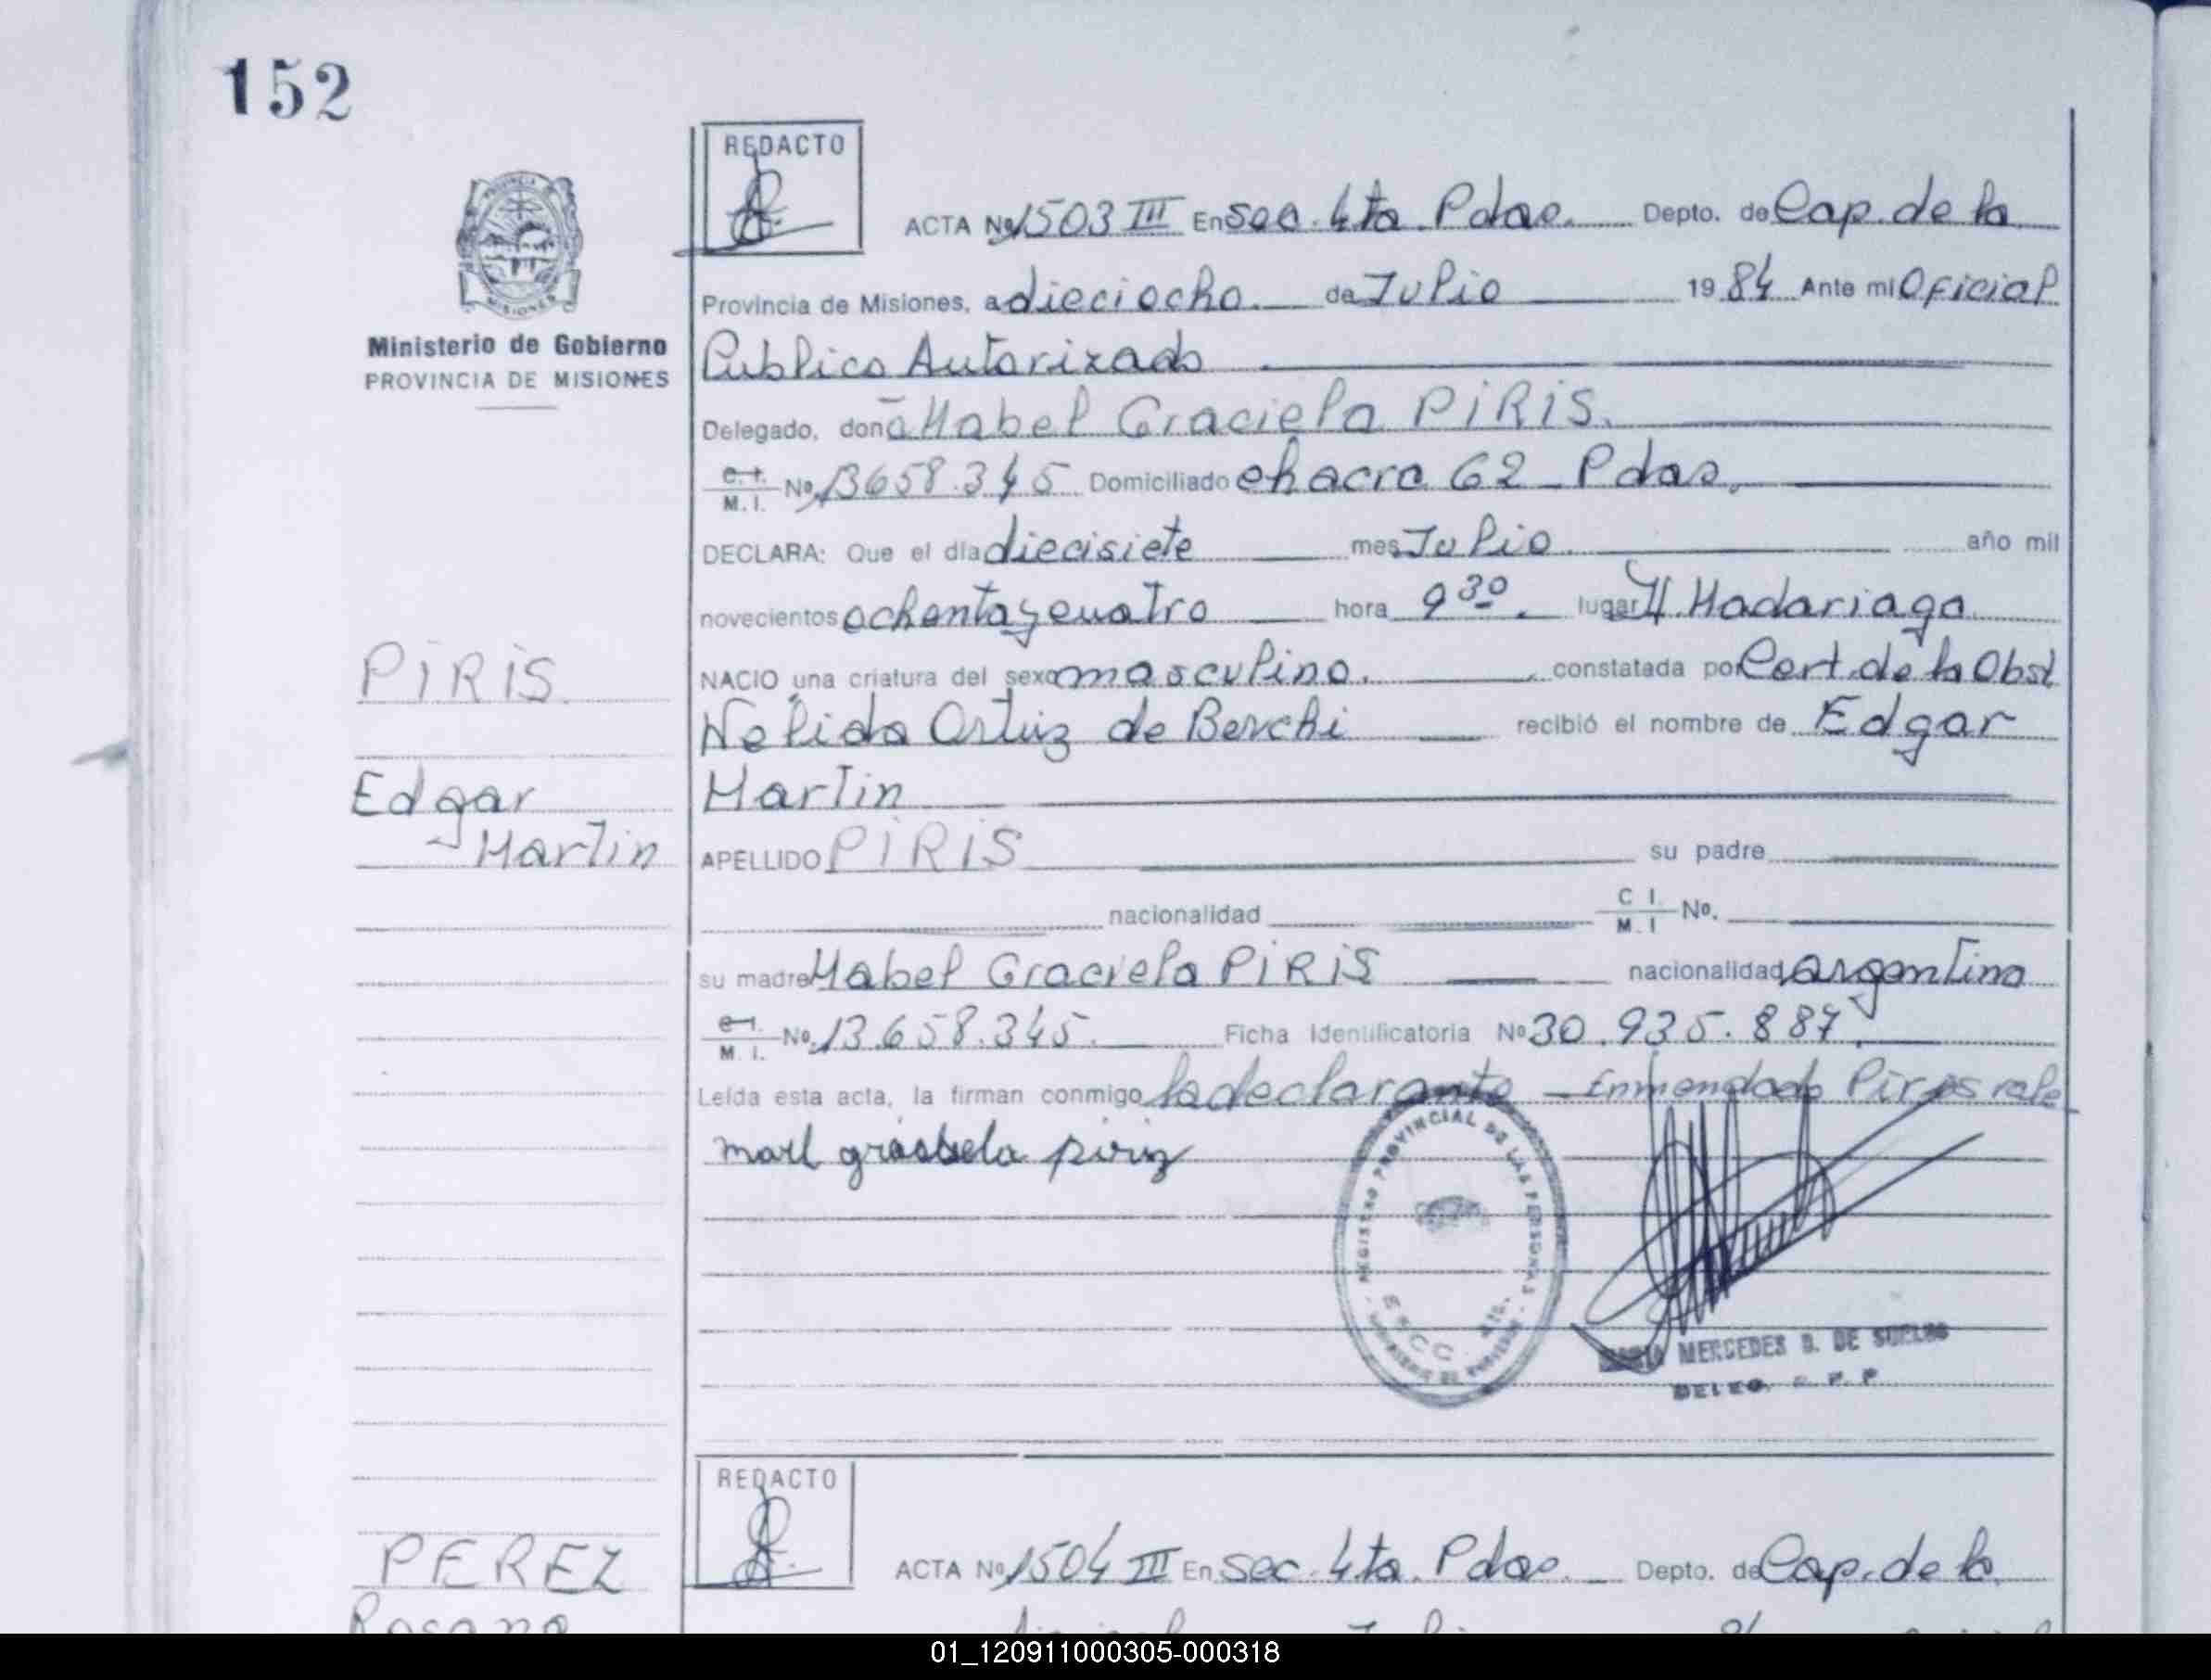 152
REDACTO
ACTA Nº 1503 III En Sec. 4ta. Pdas. Depto. de Cap. de la
Provincia de Misiones, a dieciocho. de Julio 1984 Ante mi Oficial
Publico Autorizado
Ministerio de Gobierno
PROVINCIA DE MISIONES
Delegado, doña Mabel Graciela PIRIS.
C.I. M.I. Nº 13658.345 Domiciliado chacra 62 - Pdas.
DECLARA: Que el día diecisiete mes Julio año mil
novecientos ochenta y cuatro hora 9 30. lugar H. Madariaga
NACIO una criatura del sexo masculino. constatada por Cert. de la Obst
Nelida Ortiz de Berchi recibió el nombre de Edgar
Martin
PIRIS
Edgar
Martin
APELLIDO PIRIS su padre
nacionalidad C I. M. I Nº.
su madre Mabel Graciela PIRIS nacionalidad argentina
C.I. M. I. Nº 13.658.345. Ficha Identificatoria Nº 30.935.887.
Leída esta acta, la firman conmigo la declarante - Enmendado Piris vale
marl grasbela piriz
REGISTRO PROVINCIAL DE LAS PERSONAS
MERCEDES B. DE
DELEG.
REDACTO
PEREZ
ACTA Nº 1504 III En Sec. 4ta. Pdas. Depto. de Cap. de la
01_120911000305-000318